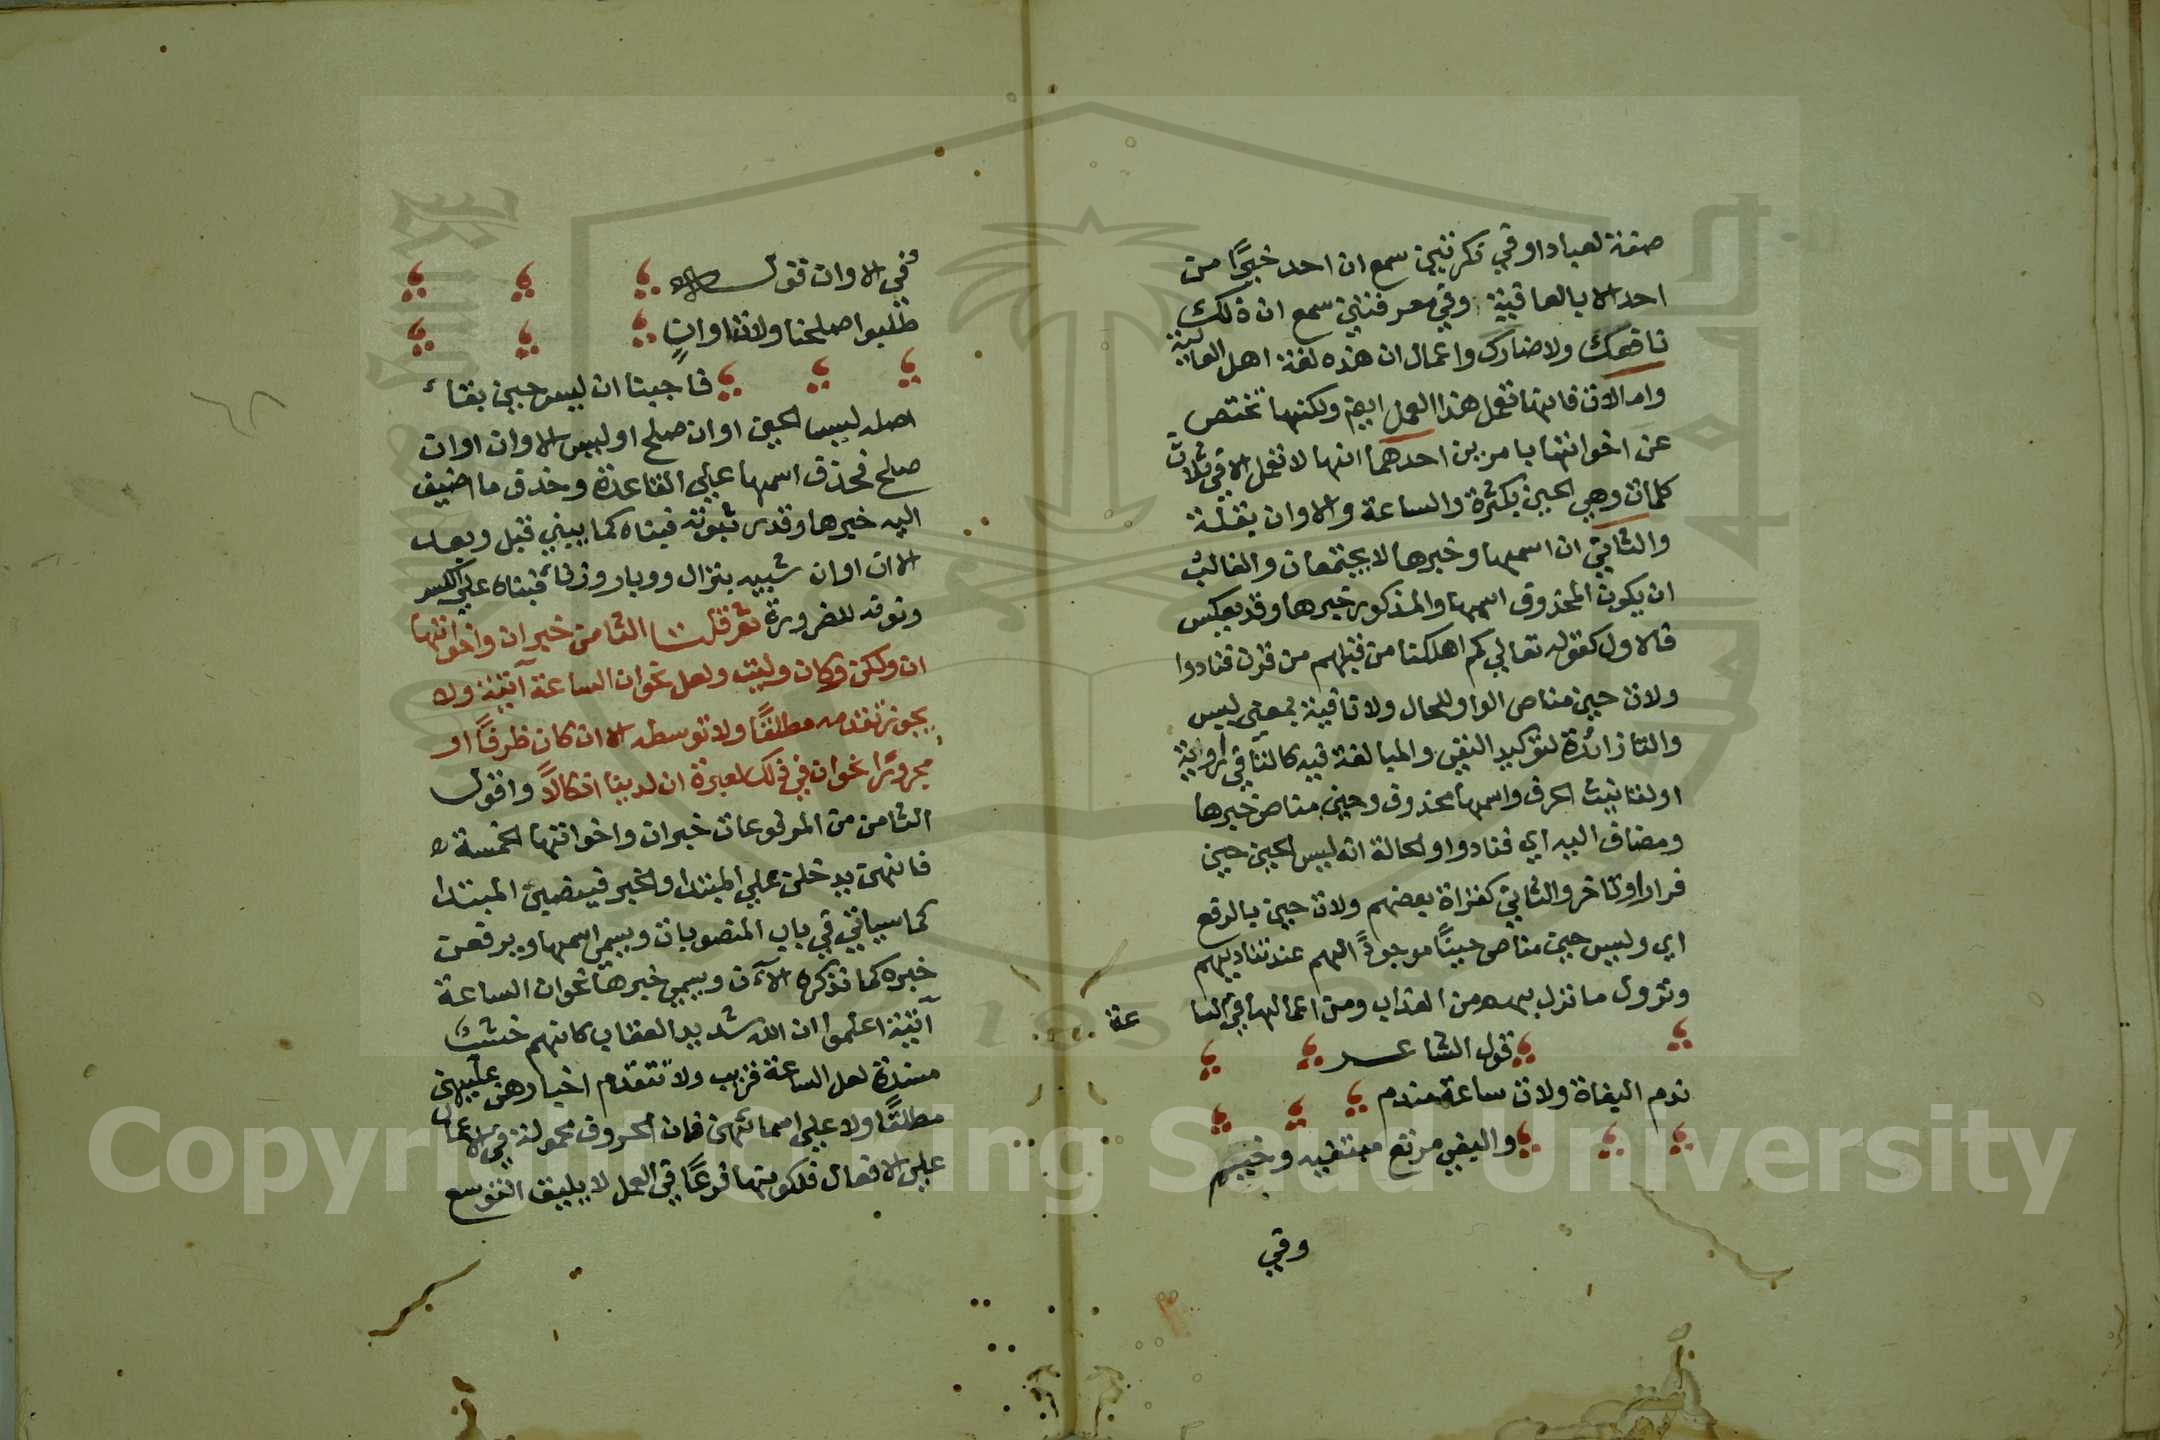 صفة لعباد او في نكرتين سمع ان احد خيرًا من
احد الا بالعافية وفي معرفتين سمع ان ذلك
نافعك ولا ضارك واعمال ان هذه لغة اهل العالية
واما لات فانها تعمل هذا العمل ايضا ولكنها تختص
عن اخواتها بامرين احدهما انها لا تعمل الا في ثلاث
كلمات وهي الحين بكثرة والساعة والاوان بقلة
والثاني ان اسمها وخبرها لا يجتمعان والغالب
ان يكون المحذوف اسمها والمذكور خبرها وقد يعكس
فالاول كقوله تعالي كم اهلكنا من قبلهم من قرن فنادوا
ولات حين مناص الواو للحال ولا نافية بمعني ليس
والتا زائدة لتوكيد النفي والمبالغة فيه كالتا في راوية
او لتانيث الحرف واسمها محذوف وحين مناص خبرها
ومضاف اليه اي فنادوا والحالة انه ليس الحين حين
فرار او تاخر والثاني كقراة بعضهم ولات حين بالرفع
اي وليس حين مناص حينًا موجودًا لهم عند تناديهم
ونزول ما نزل بهم من العذاب ومن اعمالها في السا
عة
قول الشاعر
ندم البغاة ولات ساعة مندم
والبغي مرتع مبتغيه وخيم
وفي
وفي الاوان قوله
طلبوا صلحنا ولات اوانٍ
فاجبنا ان ليس حين بقاء
اصله ليس الحين اوان صلح او ليس الاوان اوان
صلح فحذف اسمها علي القاعدة وحذف ما اضيف
اليه خبرها وقدر ثبوته فبناه كما يبني قبل وبعد
الا ان اوان شبيه بنزال ووبار وزنا فبناه علي الكسر
ونونه للضرورة ثم قلت الثامن خبر ان واخواتها
ان ولكن وكان وليت ولعل نحو ان الساعة آتية ولا
يجوز تقدمه مطلقًا ولا توسطه الا ان كان ظرفًا او
مجرورًا نحو ان في ذلك لعبرة ان لدينا انكالاً واقول
الثامن من المرفوعات خبر ان واخواتها الخمسة
فانهن يدخلن علي المبتدا والخبر فينصبن المبتدا
كما سياتي في باب المنصوبات ويسمي اسمها ويرفعن
خبره كما نذكره الآن ويسمي خبرها نحو ان الساعة
آتية اعلموا ان الله شديد العقاب كانهم خشب
مسندة لعل الساعة قريب ولا تتقدم اخبارهن عليهن
مطلقًا ولا علي اسمائهن فان الحروف محمولة في الاعمال
علي الافعال فلكونها فرعًا في العمل لا يليق التوسع
Copyright © King Saud University
1957